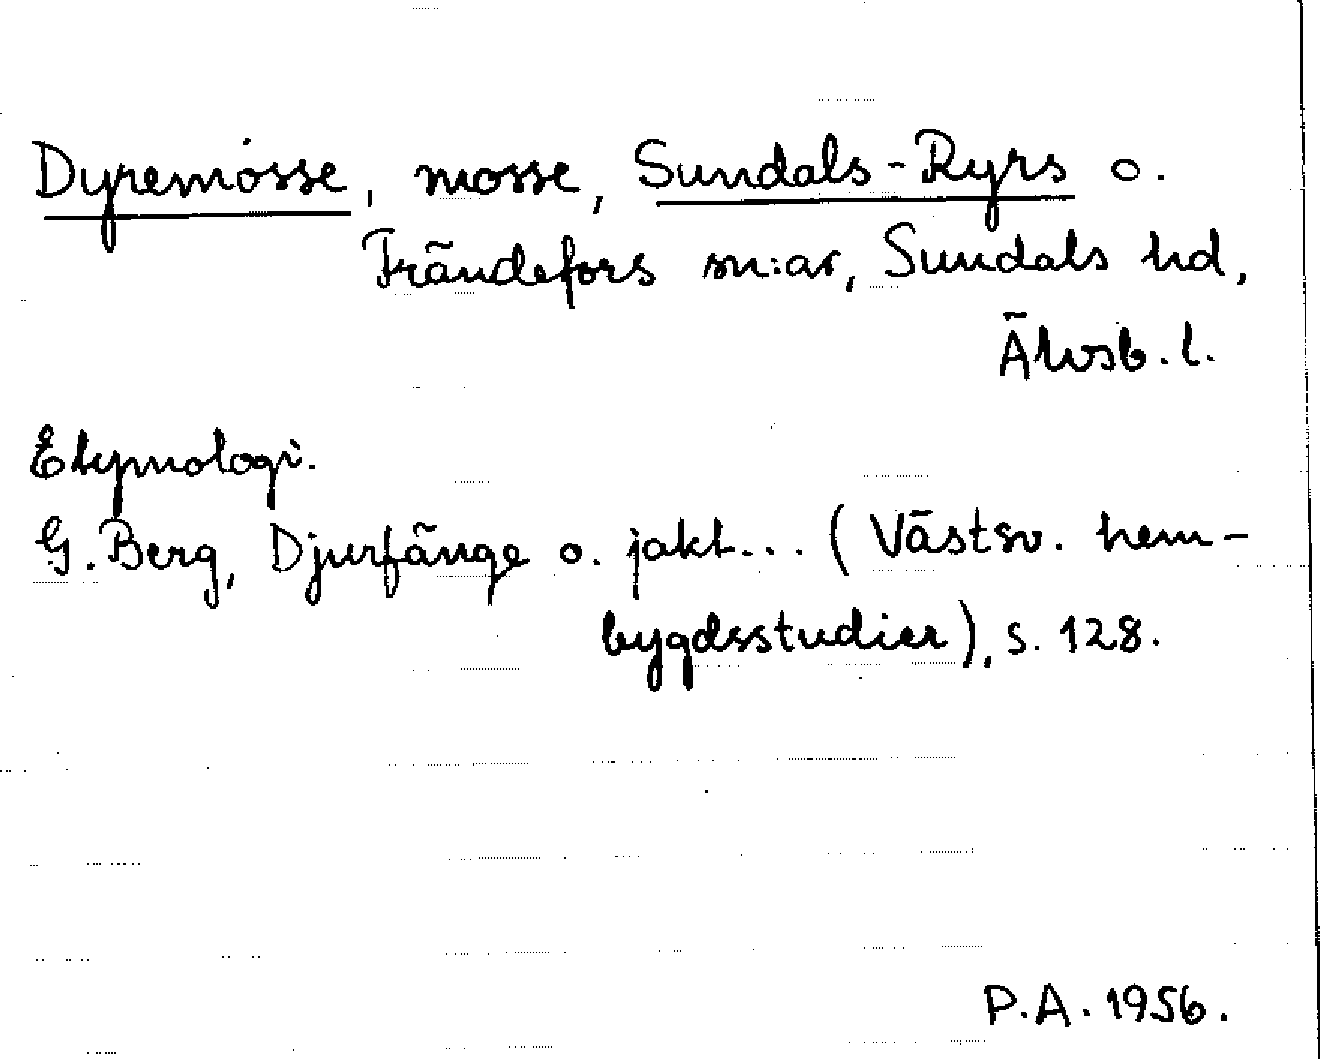 Dyremosse, mosse, Sundals-Ryrs o.
Frändefors sn:ar, Sundals hd,
Älvsb. l.
Etymologi.
G. Berg, Djurfänge o. jakt... (Västsv. hem-
bygdsstudier), s. 128.
P.A. 1956.